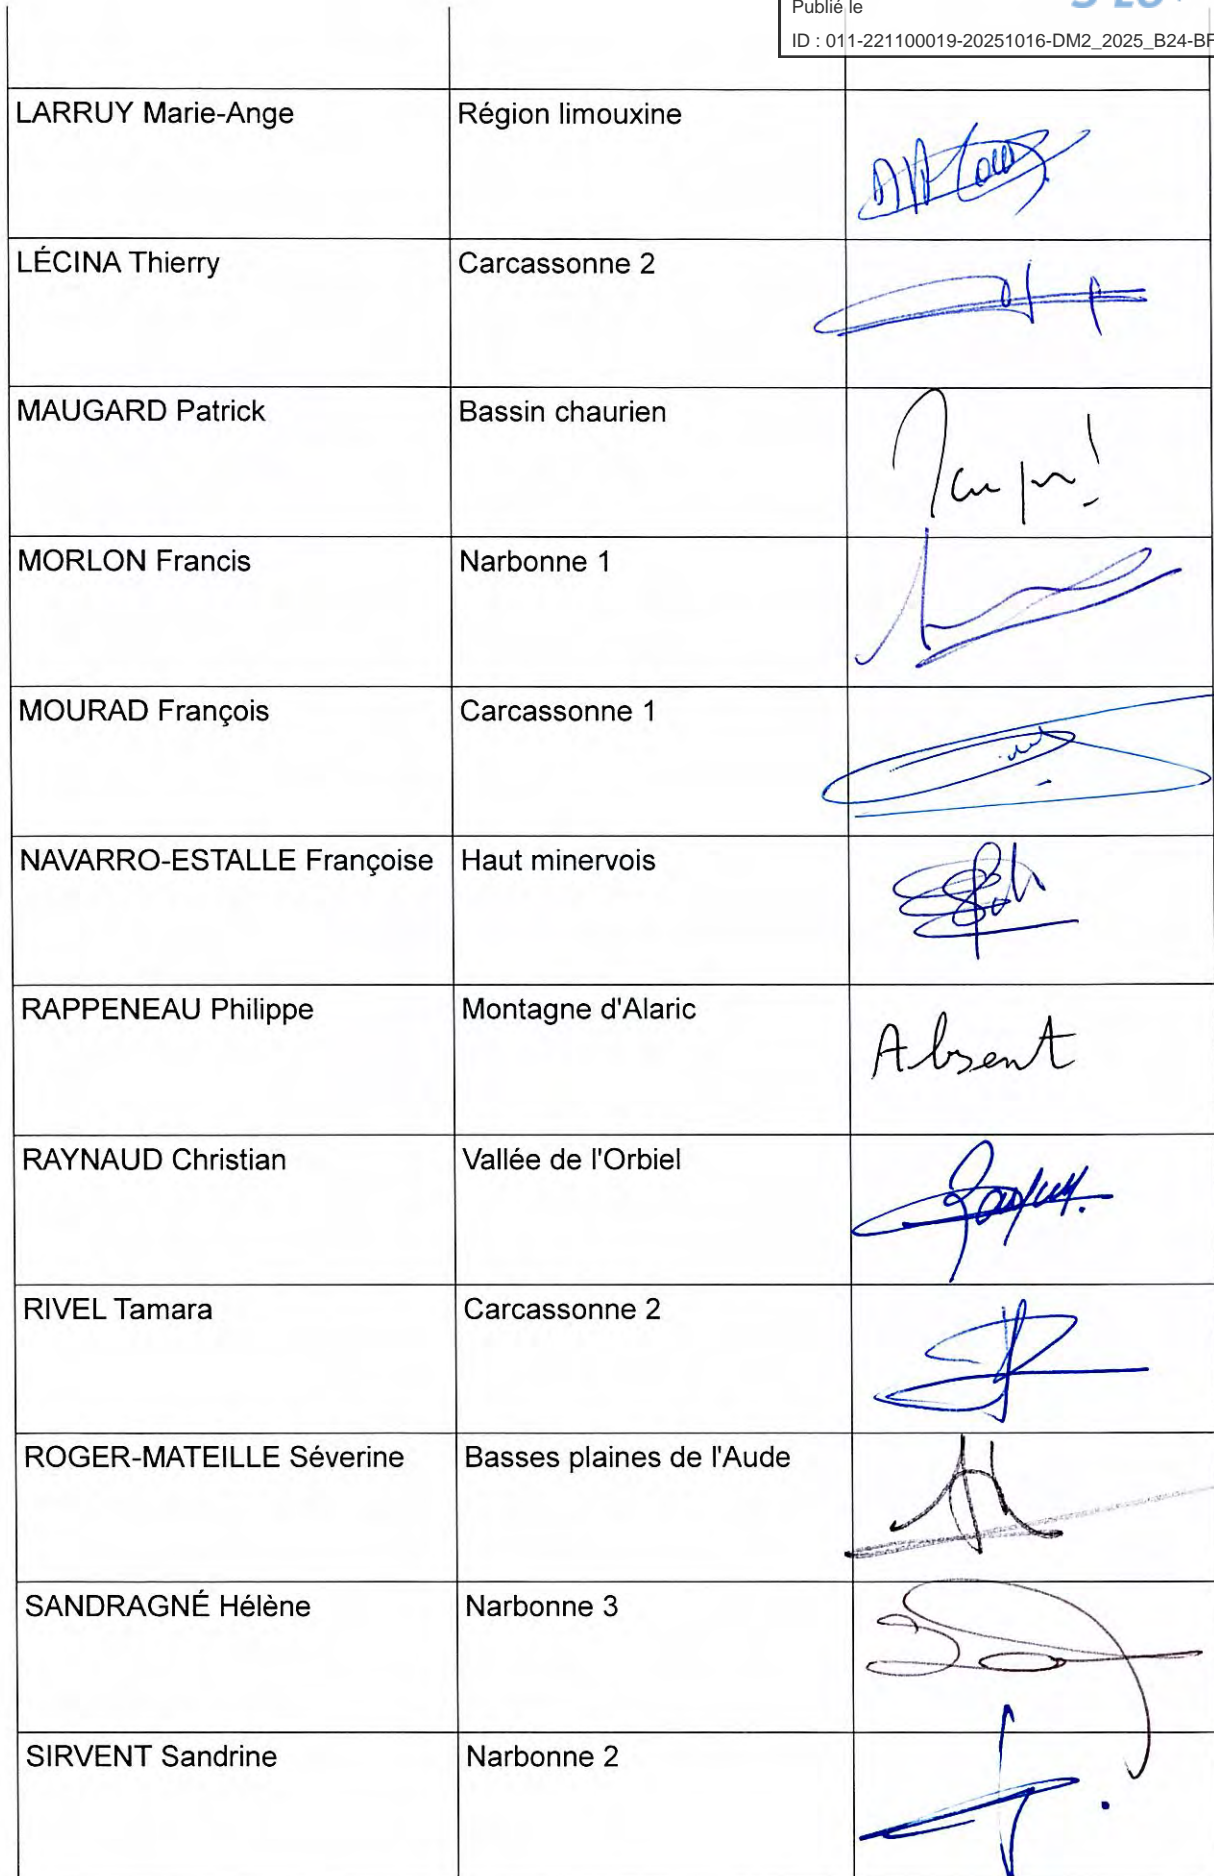 Publié le
ID : 011-221100019-20251016-DM2_2025_B24-BF
LARRUY Marie-Ange Région limouxine
LÉCINA Thierry Carcassonne 2
MAUGARD Patrick Bassin chaurien
MORLON Francis Narbonne 1
MOURAD François Carcassonne 1
NAVARRO-ESTALLE Françoise Haut minervois
RAPPENEAU Philippe Montagne d'Alaric Absent
RAYNAUD Christian Vallée de l'Orbiel
RIVEL Tamara Carcassonne 2
ROGER-MATEILLE Séverine Basses plaines de l'Aude
SANDRAGNÉ Hélène Narbonne 3
SIRVENT Sandrine Narbonne 2